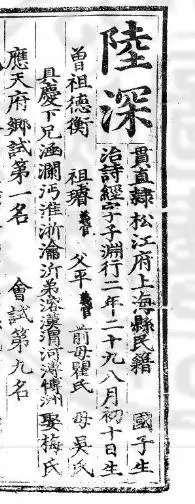 陸深
貫直隸松江府上海縣民籍 國子生
治詩經字子淵行二年二十九八月初十日生
曾祖德衡 祖璿義官 父平義官 前母瞿氏 母吳氏
具慶下兄涵瀾沔淮浙瀹沂弟溶漢渭河溥博洲 娶梅氏
應天府鄉試第一名 會試第九名